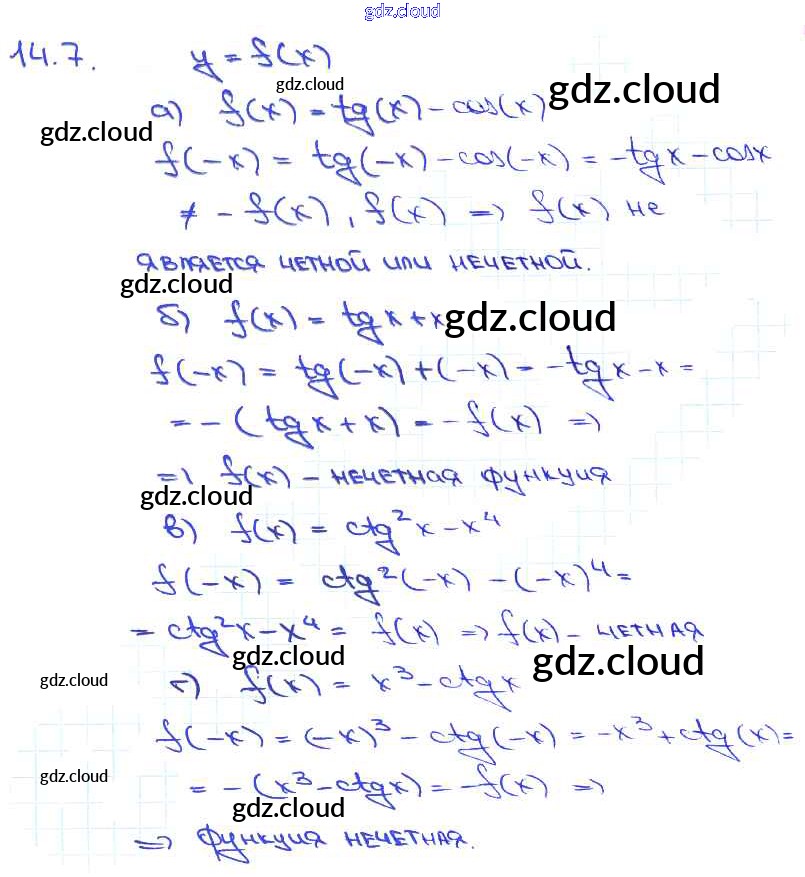 gdz.cloud
14.7. y = f(x)
gdz.cloud gdz.cloud
а) f(x) = tg(x) - cos(x)
gdz.cloud
f(-x) = tg(-x) - cos(-x) = -tgx - cosx
≠ - f(x), f(x) => f(x) не
является четной или нечетной.
gdz.cloud
б) f(x) = tgx + x gdz.cloud
f(-x) = tg(-x) + (-x) = -tgx - x =
= - (tgx + x) = -f(x) =>
=> f(x) - нечетная функция
gdz.cloud
в) f(x) = ctg²x - x⁴
f(-x) = ctg²(-x) - (-x)⁴ =
= ctg²x - x⁴ = f(x) => f(x) - четная
gdz.cloud gdz.cloud
gdz.cloud
г) f(x) = x³ - ctgx
f(-x) = (-x)³ - ctg(-x) = -x³ + ctg(x) =
gdz.cloud
= - (x³ - ctgx) = -f(x) =>
gdz.cloud
=> функция нечетная.